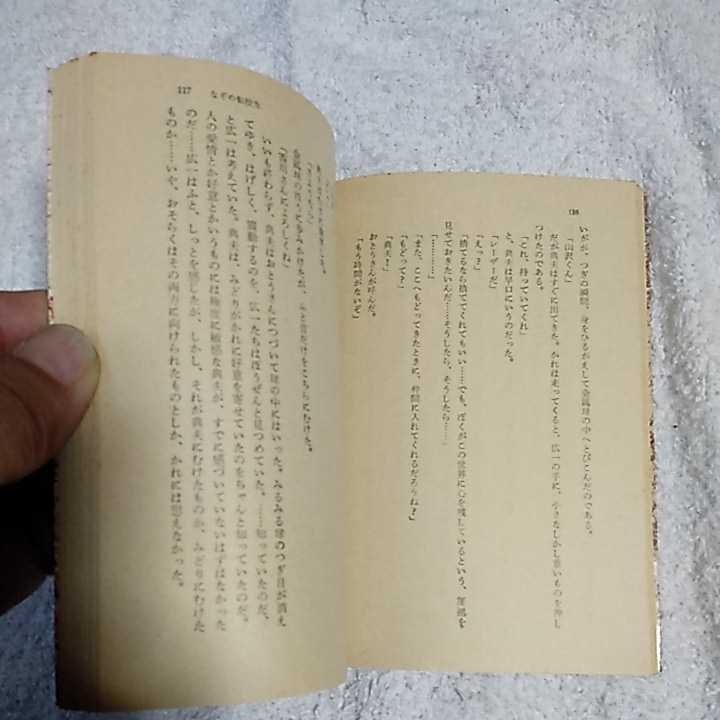 いがが、つぎの瞬間、身をひるがえして金属球の中へとびこんだのである。
「山沢くん」
だが典夫はすぐに出てきた。かれは走ってくると、広一の手に、小さなしかし重いものを押し
つけたのである。
「これ、持っていてくれ」
と、典夫は早口にいうのだった。
「レーザーだ」
「えっ？」
「捨てるなら捨ててくれてもいい……でも、ぼくがこの世界に心を残しているという、証拠を
見せておきたいんだ……そうしたら、そうしたら……」
「…………」
「また、ここへもどってきたときに、仲間に入れてくれるだろうね？」
「もどって？」
「典夫！」
おとうさんが呼んだ。
「もう時間がないぞ」
117 なぞの転校生
金属球の方へ歩みかけたが、ふと首だけをこちらにむけた。
「香川さんによろしくね」
いいも終わらず、典夫はおとうさんにつづいて球の中にはいった。みるみる球のつぎ目が消え
てゆき、はげしく、震動するのを、広一たちはぼうぜんと見つめていた。……知っていたのだ、
と広一は考えていた。典夫は、みどりがかれに好意を寄せていたのをちゃんと知っていたのだ。
人の愛情とか好意とかいうものには極度に敏感な典夫が、すでに感づいていないはずはなかった
のだ……広一はふと、しっとを感じたが、しかし、それが典夫にむけたものか、みどりにむけた
ものか……いや、おそらくはその両方に向けられたものとしか、かれには思えなかった。